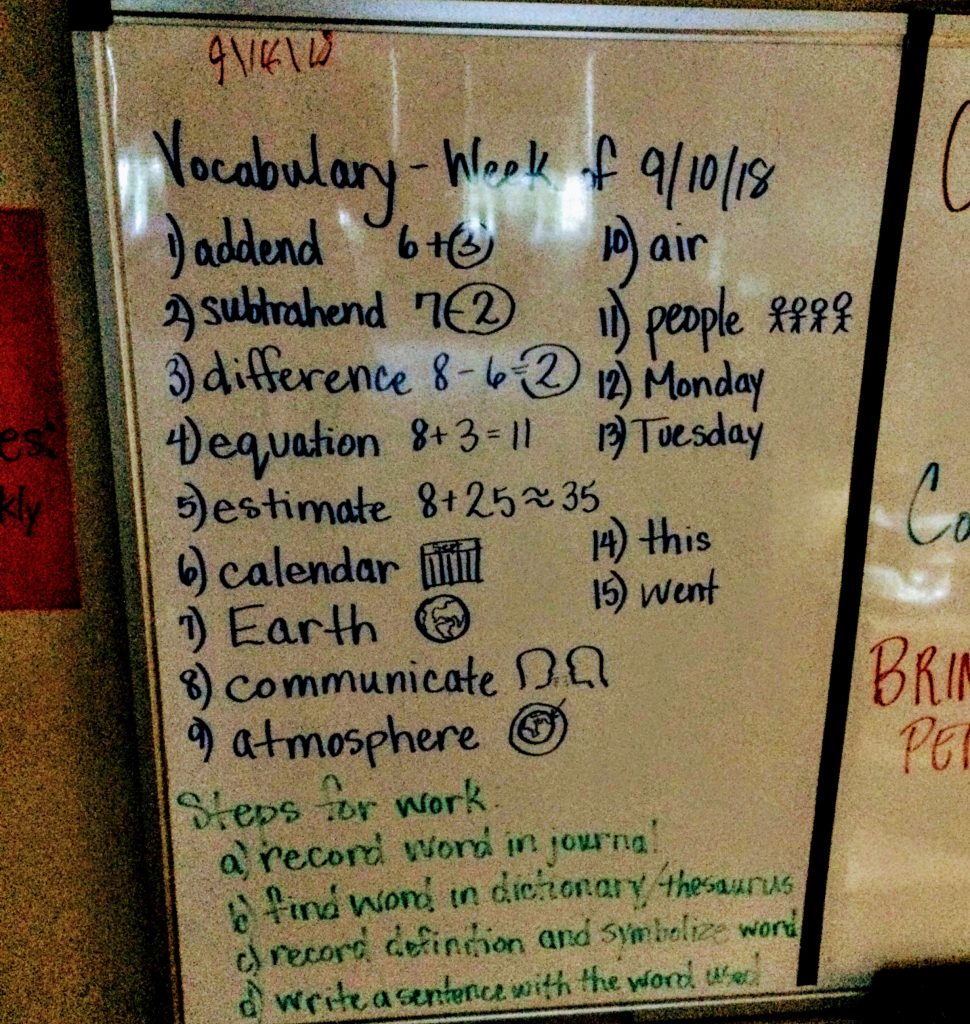 Vocabulary - Week of 9/10/18
1) addend 6 + 3
2) subtrahend 7 - 2
3) difference 8 - 6 = 2
4) equation 8 + 3 = 11
5) estimate 8 + 25 ≈ 35
6) calendar
7) Earth
8) communicate
9) atmosphere
10) air
11) people
12) Monday
13) Tuesday
14) this
15) went
Steps for work
a) record word in journal
b) find word in dictionary/thesaurus
c) record definition and symbolize word
d) write a sentence with the word used
es:
kly
Co
BRIN
PET